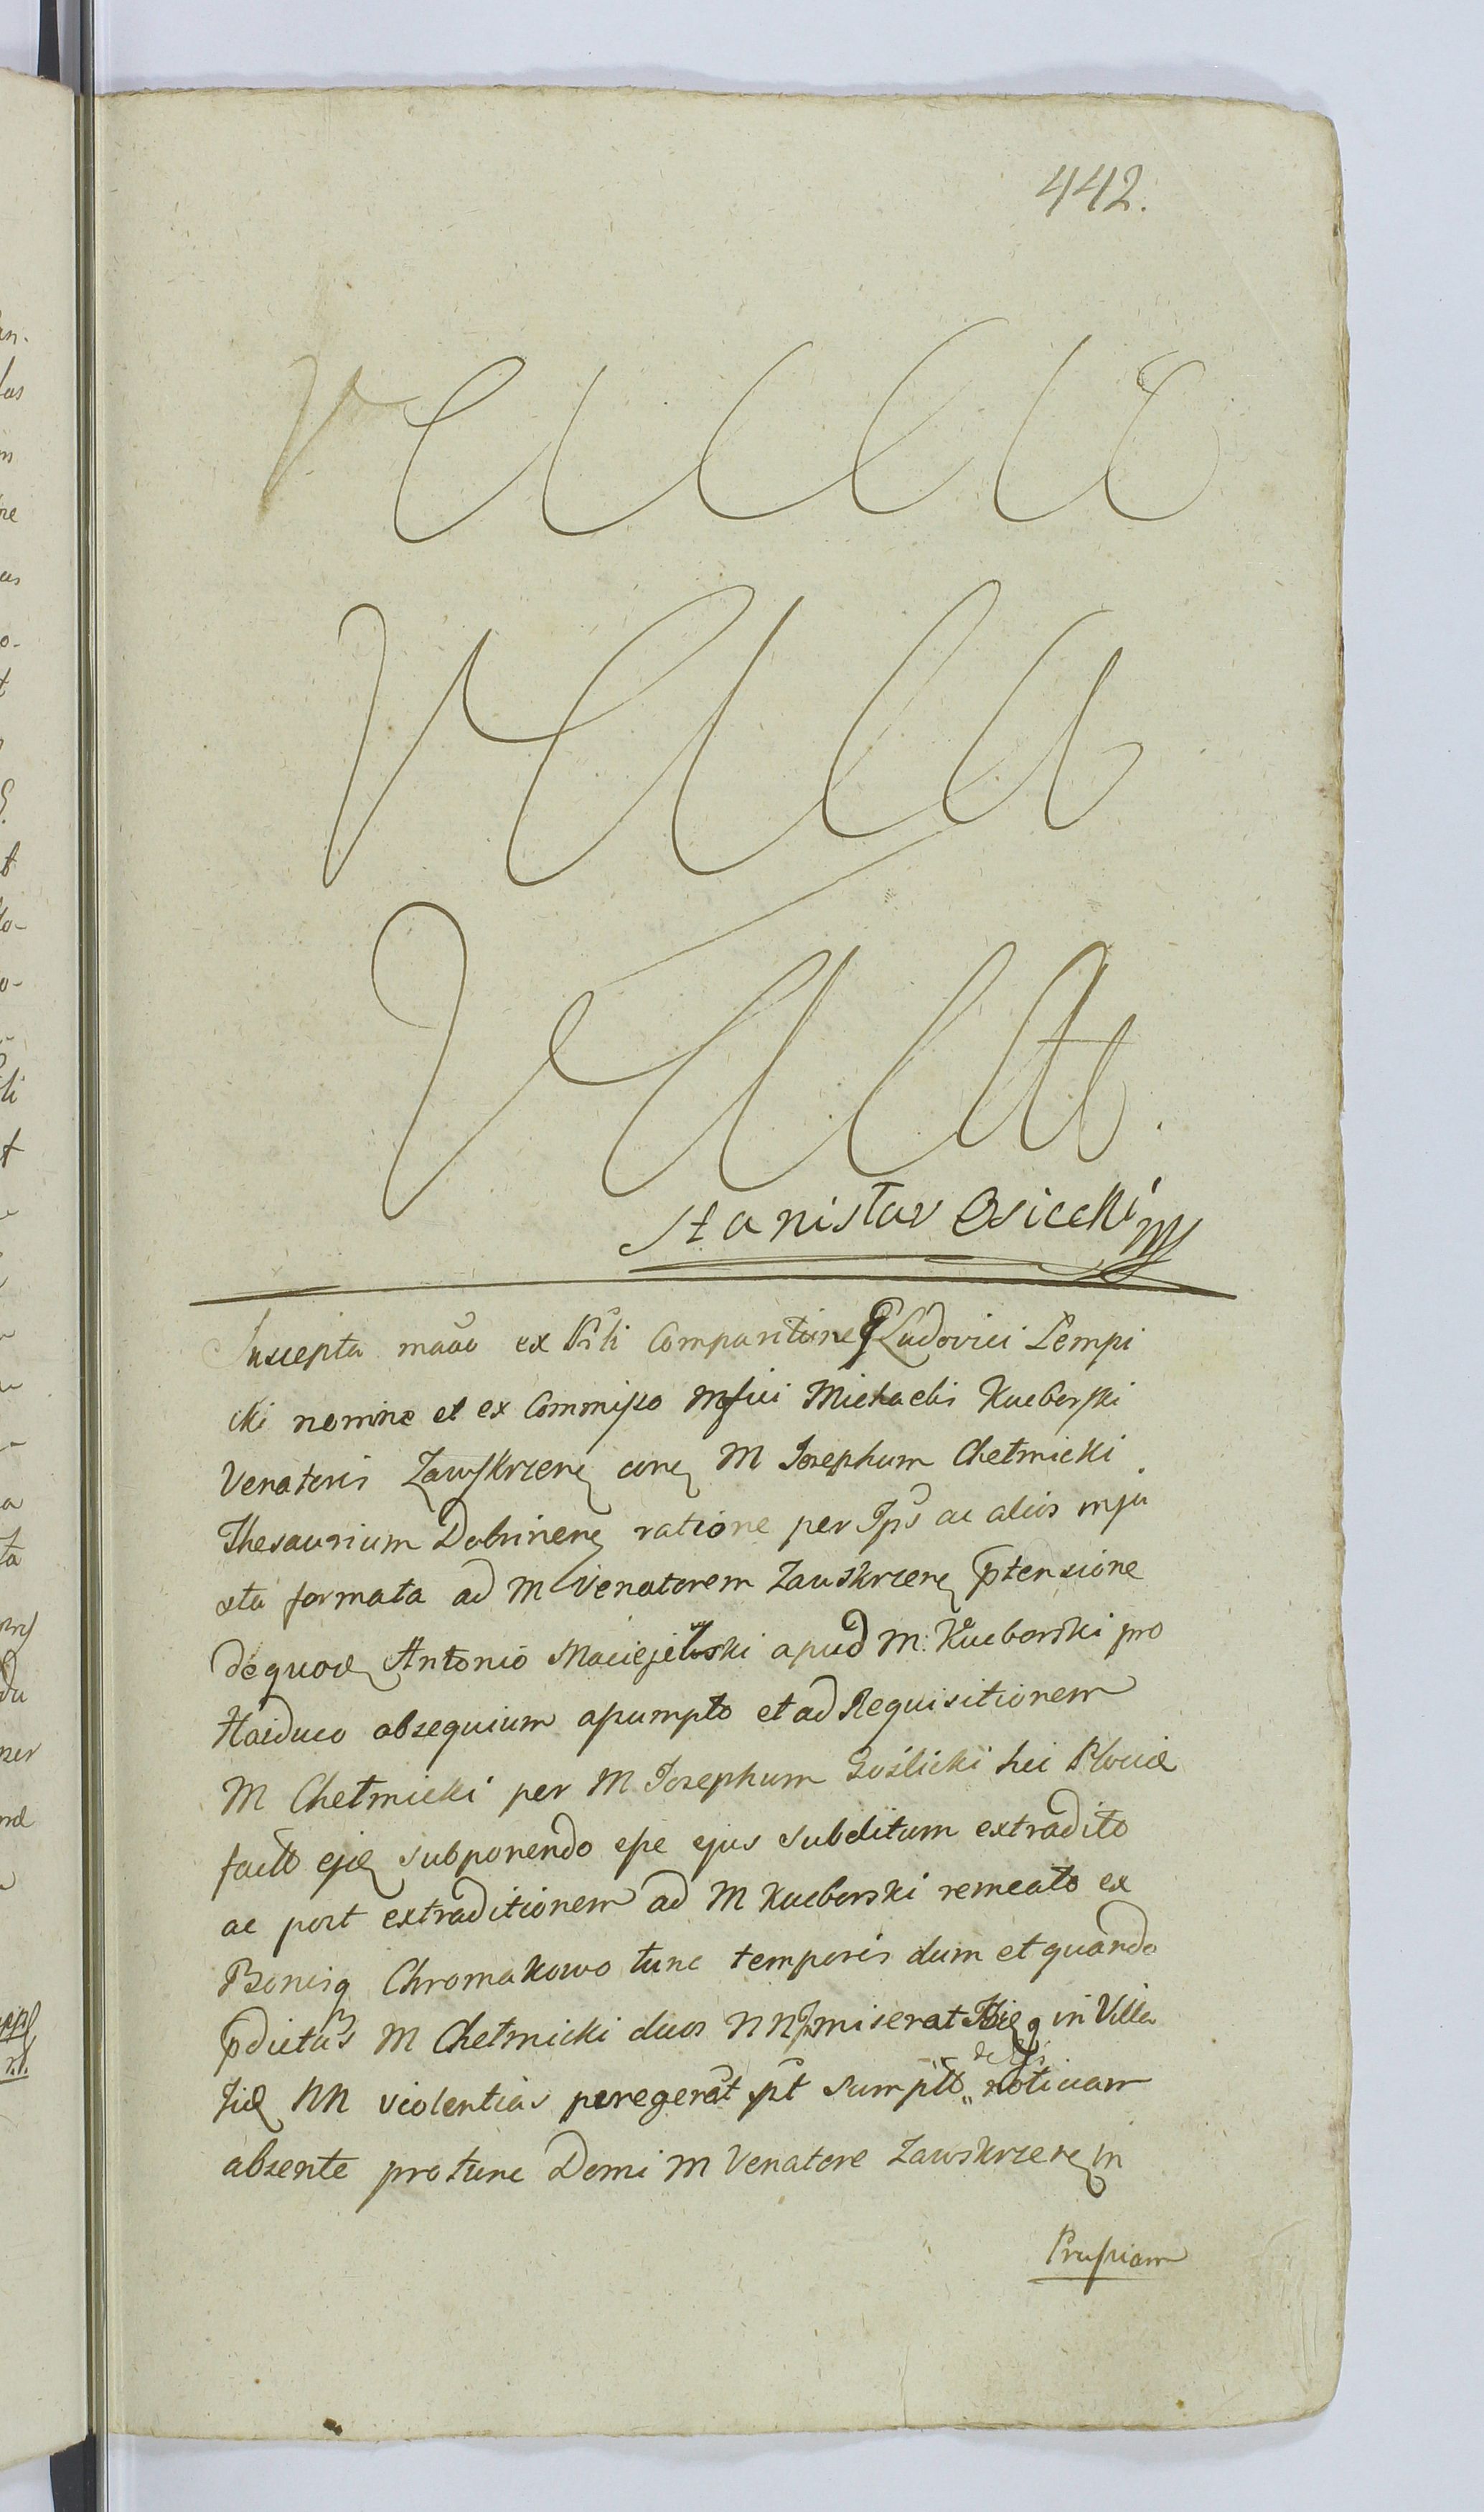 442.
Vacat
Vacat
Vacat.
Stanisław Osiecki mp
Suscepta ex Comparitione G Ludovici Lempi
cki nomine et ex Commisso Mfici Michaelis Kucborski
Venatoris Zawskrzen M Josephum Chełmicki
Thesaurium Dobrinen ratione per Ips ac alios inju
ste formata ad M Venatorem Zawskrzen ptensione
de quod Antonio Maciejewski apud M. Kucborski pro
Haiduco obsequium assumpto et ad Requisitionem
M Chełmicki per M Josephum Goślicki hei Plociæ
facto subponendo esse ejus subditum extradito
ac post extraditionem ad M Kucborski remeato ex
Bonisq Chromakowo tunc temporis dum et quando
pdictus M Chełmicki duos NN miserat in Villa
NN violentias peregerāt pt sumpto noticiam
absente pro tunc Domi M Venatore Zawskrzen in
Prussiam